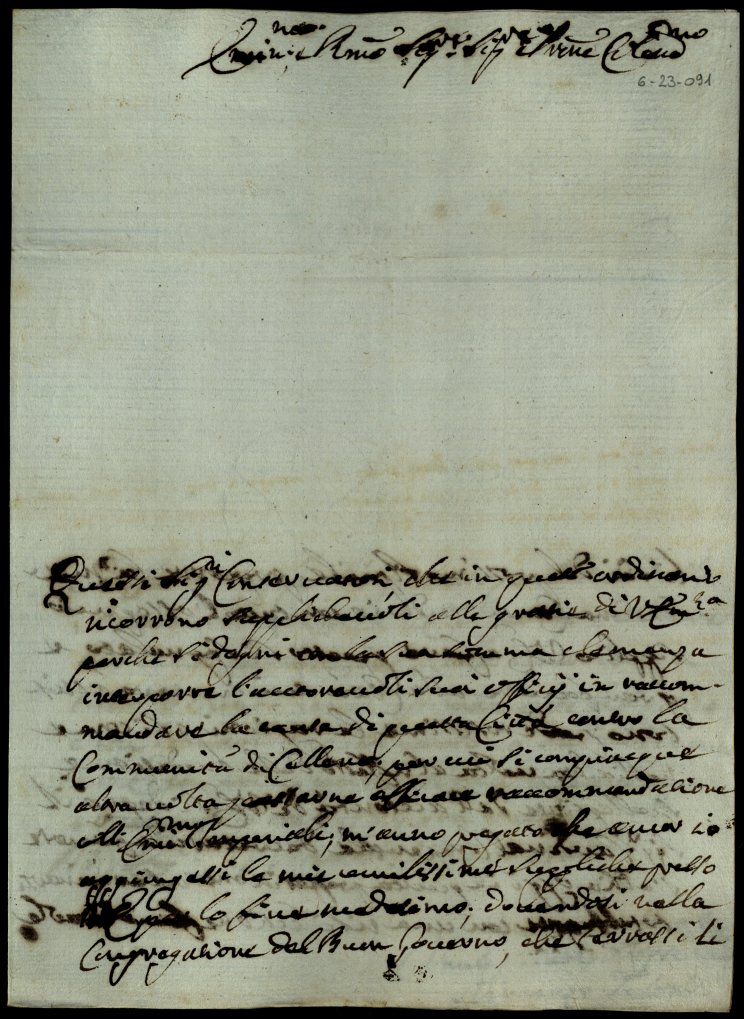 Emin.mo e Rmo Sig.re Sig.re e Prone Col.mo
6-23-091
Questi Sig.ri Conservatori che in quest' ordinario
ricorrono supplichevoli alle grazie di V. Em.za
perche si degni con la sua somma clemenza
interporre l'autorevoli suoi officij in raccom-
mandare la causa di questa Città contro la
Communità di Celleno, per cui si compiacque
altra volta passarne efficace raccommandazione
all' Em.mo Imperiali, m'anno pregato che ancor io
aggiungessi le mie umilissime suppliche presso
lo fine medesimo; dovendosi nella
Congregazione del Buon Governo, che terrassi li